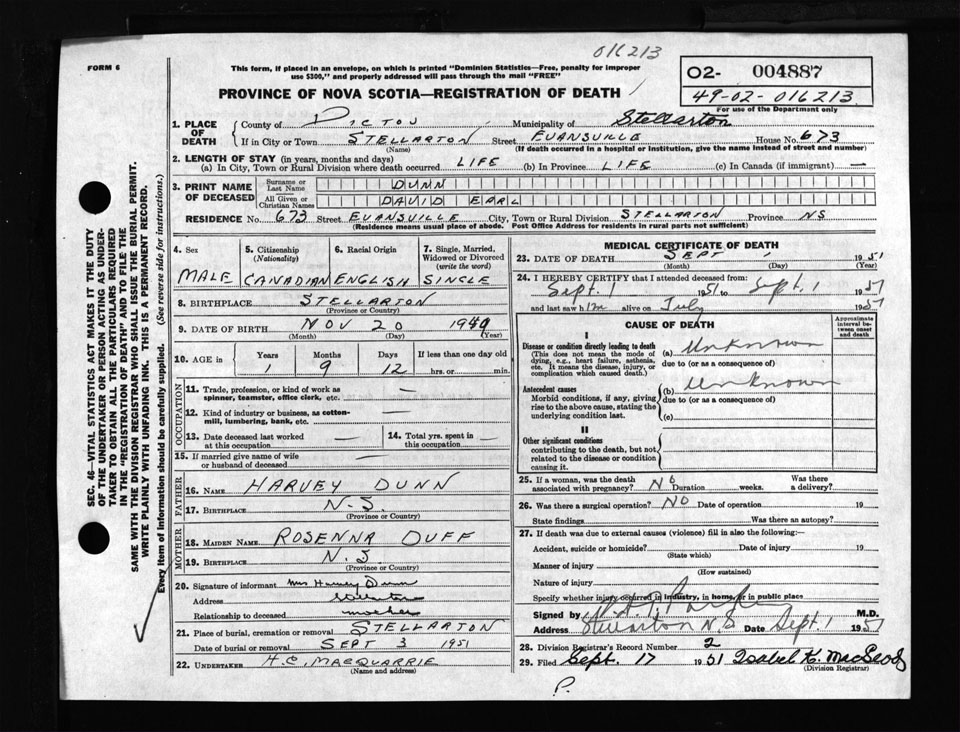 016213
FORM 6
This form, if placed in an envelope, on which is printed "Dominion Statistics—Free, penalty for improper
use $300," and properly addressed will pass through the mail "FREE"
PROVINCE OF NOVA SCOTIA—REGISTRATION OF DEATH
O2- 004887
49-02-016213
For use of the Department only
1. PLACE OF DEATH
County of PICTOU Municipality of Stellarton
If in City or Town STELLARTON Street EVANSVILLE House No. 673
(Name) (If death occurred in a hospital or institution, give the name instead of street and number)
2. LENGTH OF STAY (in years, months and days)
(a) In City, Town or Rural Division where death occurred LIFE (b) In Province LIFE (c) In Canada (if immigrant) —
3. PRINT NAME OF DECEASED
Surname or Last Name DUNN
All Given or Christian Names DAVID EARL
RESIDENCE No. 673 Street EVANSVILLE City, Town or Rural Division STELLARTON Province NS
(Residence means usual place of abode. Post Office Address for residents in rural parts not sufficient)
SEC. 46—VITAL STATISTICS ACT MAKES IT THE DUTY
OF THE UNDERTAKER OR PERSON ACTING AS UNDER-
TAKER TO OBTAIN ALL THE PARTICULARS REQUIRED
IN THE "REGISTRATION OF DEATH" AND TO FILE THE
SAME WITH THE DIVISION REGISTRAR WHO SHALL ISSUE THE BURIAL PERMIT.
WRITE PLAINLY WITH UNFADING INK. THIS IS A PERMANENT RECORD.
Every item of information should be carefully supplied. (See reverse side for instructions.)
4. Sex
MALE
5. Citizenship (Nationality)
CANADIAN
6. Racial Origin
ENGLISH
7. Single, Married, Widowed or Divorced (write the word)
SINGLE
8. BIRTHPLACE STELLARTON
(Province or Country)
9. DATE OF BIRTH NOV 20 1949
(Month) (Day) (Year)
10. AGE IN Years Months Days If less than one day old
1 9 12 hrs. or min.
OCCUPATION
11. Trade, profession, or kind of work as spinner, teamster, office clerk, etc. —
12. Kind of industry or business, as cotton-mill, lumbering, bank, etc. —
13. Date deceased last worked at this occupation —
14. Total yrs. spent in this occupation —
15. If married give name of wife or husband of deceased —
FATHER
16. NAME HARVEY DUNN
17. BIRTHPLACE N.S.
(Province or Country)
MOTHER
18. MAIDEN NAME ROSENNA DUFF
19. BIRTHPLACE N.S
(Province or Country)
20. Signature of informant Mrs Harvey Dunn
Address Stellarton
Relationship to deceased mother
21. Place of burial, cremation or removal STELLARTON
Date of burial or removal SEPT 3 1951
22. UNDERTAKER H.C. MACQUARRIE
(Name and address)
MEDICAL CERTIFICATE OF DEATH
23. DATE OF DEATH SEPT 1 1951
(Month) (Day)
24. I HEREBY CERTIFY that I attended deceased from:
Sept. 1 1951 to Sept. 1 1951
and last saw him alive on July 1951
CAUSE OF DEATH
Approximate interval between onset and death
I
Disease or condition directly leading to death
(This does not mean the mode of dying, e.g., heart failure, asthenia, etc. It means the disease, injury, or complication which caused death.)
(a) Unknown
due to (or as a consequence of)
Antecedent causes
Morbid conditions, if any, giving rise to the above cause, stating the underlying condition last.
(b) Unknown
due to (or as a consequence of)
(c)
II
Other significant conditions
contributing to the death, but not related to the disease or condition causing it.
25. If a woman, was the death associated with pregnancy? NO Duration weeks. Was there a delivery?
26. Was there a surgical operation? NO Date of operation 19
State findings Was there an autopsy?
27. If death was due to external causes (violence) fill in also the following:—
Accident, suicide or homicide? Date of injury 19
(State which)
Manner of injury
(How sustained)
Nature of injury
Specify whether injury occurred in industry, in home, or in public place
Signed by M.D.
Address Stellarton N.S Date Sept. 1 1951
28. Division Registrar's Record Number 2
29. Filed Sept. 17 1951 Isabel K. MacLeod
(Division Registrar)
P.